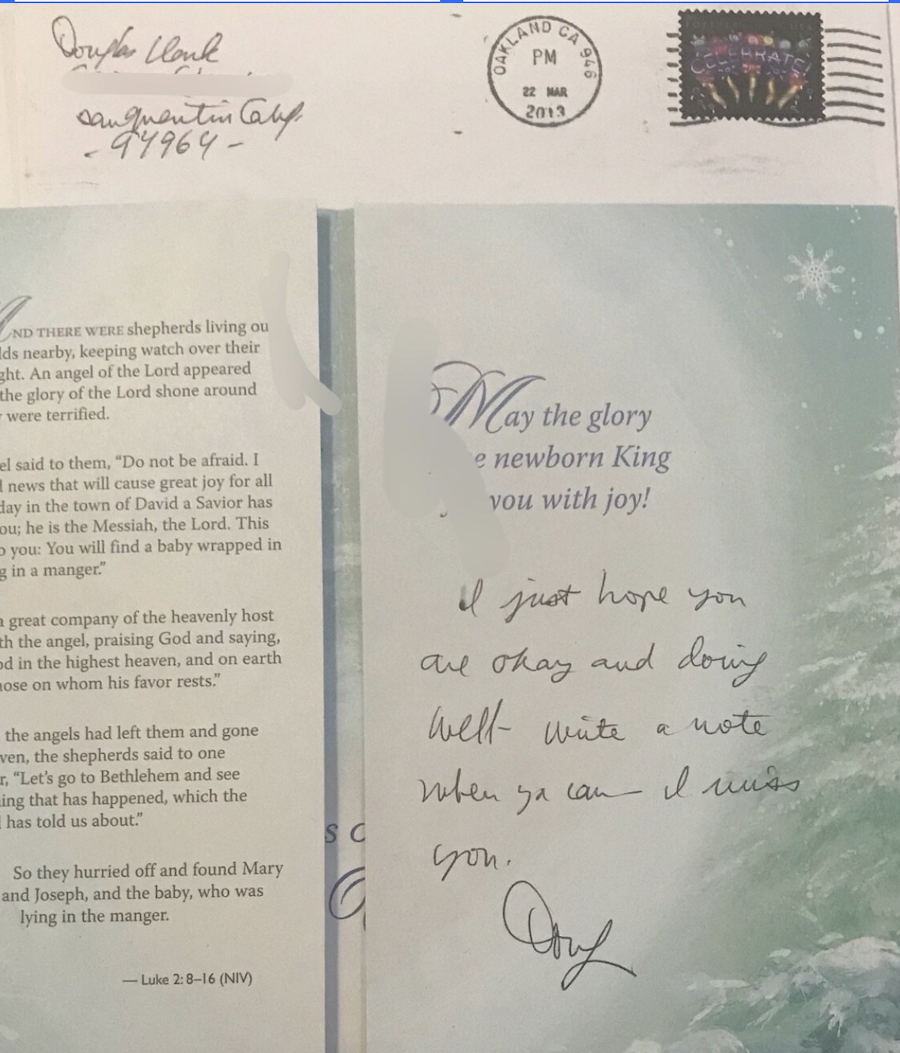 Douglas Clark
sanquentin Calif.
- 94964 -
OAKLAND CA 946
PM
22 MAR
2013
CELEBRATE!
AND THERE WERE shepherds living ou
lds nearby, keeping watch over their
ght. An angel of the Lord appeared
the glory of the Lord shone around
were terrified.
el said to them, “Do not be afraid. I
news that will cause great joy for all
day in the town of David a Savior has
ou; he is the Messiah, the Lord. This
o you: You will find a baby wrapped in
g in a manger.”
a great company of the heavenly host
th the angel, praising God and saying,
od in the highest heaven, and on earth
hose on whom his favor rests.”
the angels had left them and gone
ven, the shepherds said to one
r, “Let’s go to Bethlehem and see
ing that has happened, which the
has told us about.”
So they hurried off and found Mary
and Joseph, and the baby, who was
lying in the manger.
— Luke 2: 8–16 (NIV)
S C
May the glory
e newborn King
you with joy!
I just hope you
are okay and doing
well- write a note
when ya can — I miss
you.
Doug